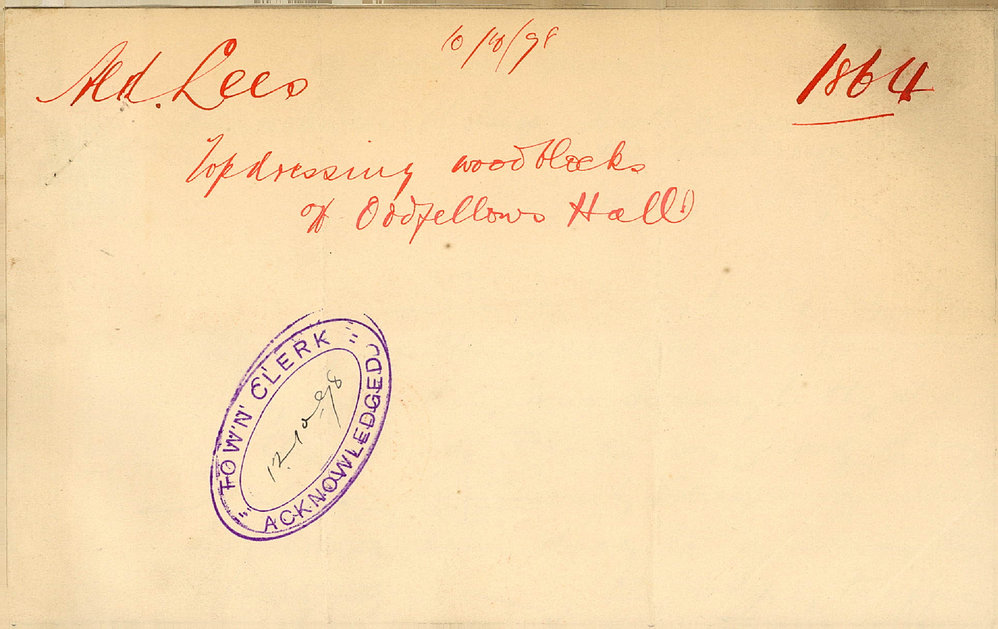 Ald. Lees
10/10/98
1864
Topdressing woodblocks
at Oddfellows Hall
TOWN CLERK
12-10-98
ACKNOWLEDGED